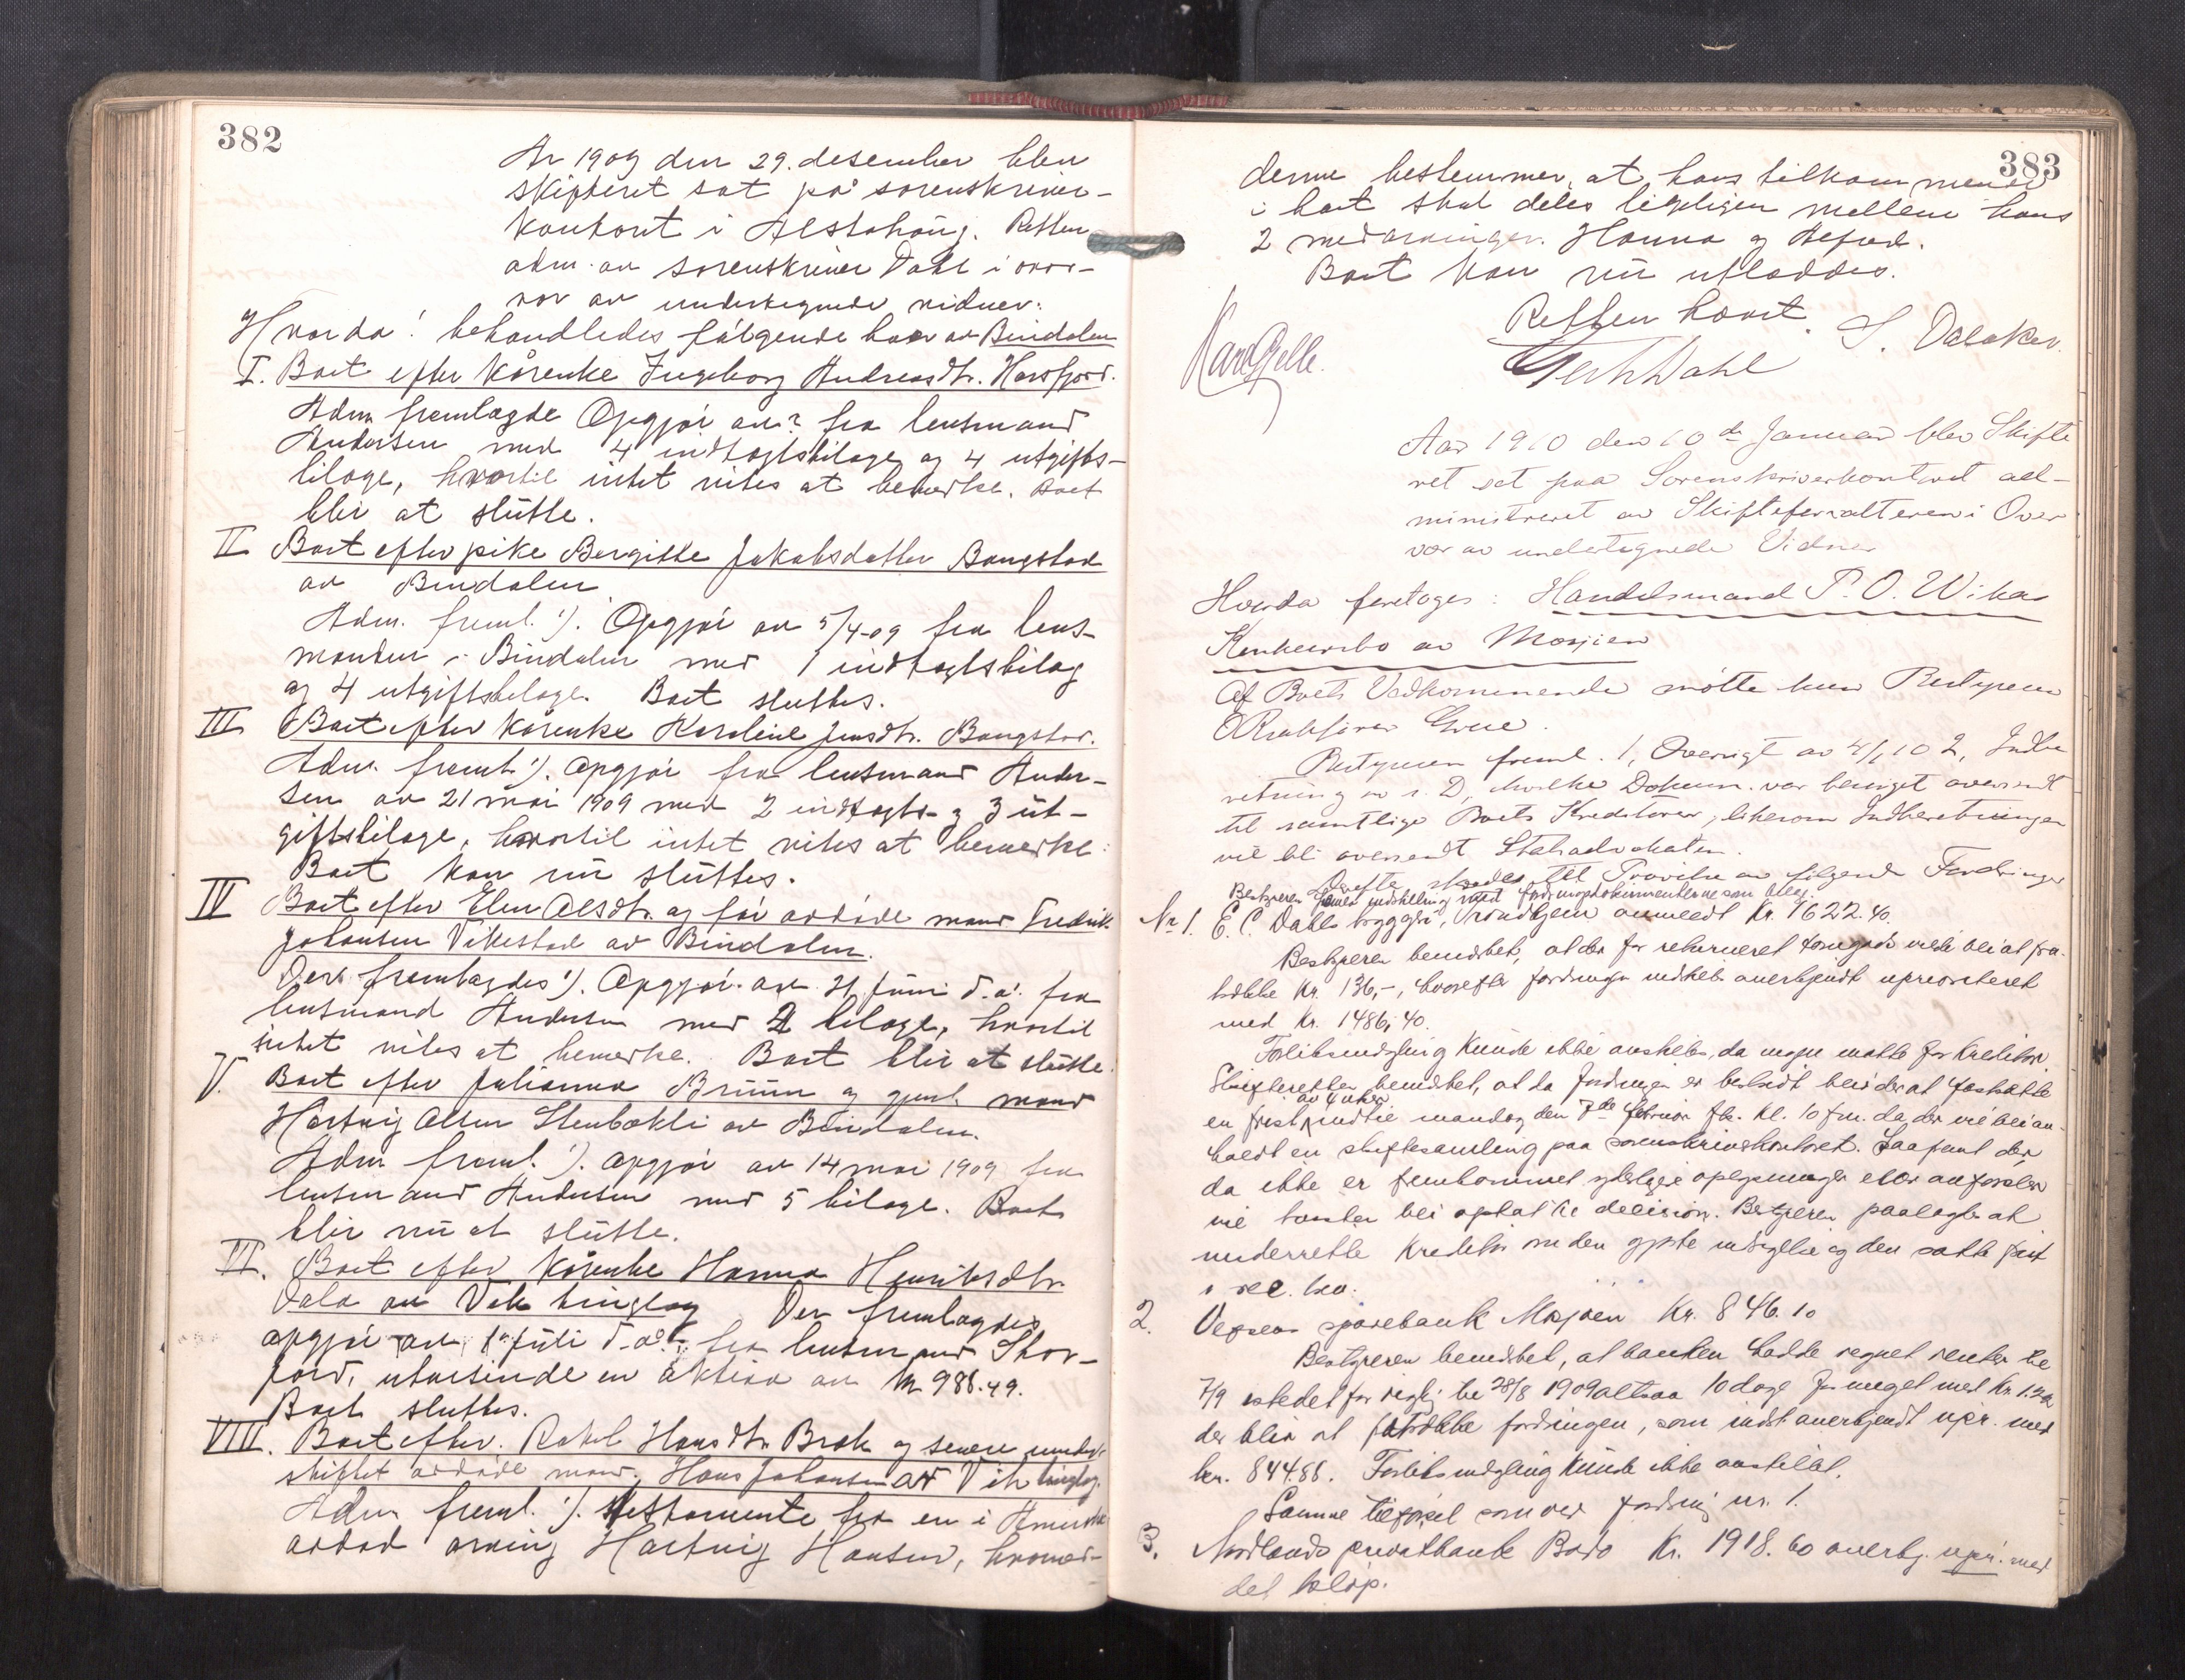 382
År 1909 den 29. desember blev
skifteret sat på sorenskriver-
kontoret i Alstahaug. Retten
adm. av sorenskriver Dahl i over-
vær av undertegnede vidner.
Hvorda! behandledes følgende boer av Bindalen
I. Boet efter kårenke Ingeborg Andreasdtr. Horsfjord.
Adm. fremlagde Opgjør av ? fra lensmand
Andersen med 4 indtægtsbilage og 4 utgifts-
bilage, hvortil intet vites at bemerke. Boet
blir at slutte.
II Boet efter pike Bergitte Jakobsdatter Bangstad
av Bindalen
Adm. freml. 1). Opgjør av 5/4-09 fra lens-
manden i Bindalen med 1 indtægtsbilag
og 4 utgiftsbilage. Boet sluttes.
III Boet efter kårenke Karoline Jensdtr. Bangstad.
Adm. freml. 1). Opgjør fra lensmand Ander-
sen av 21 mai 1909 med 2 indtægts- og 3 ut-
giftsbilage, hvortil intet vites at bemerke.
Boet kan nu sluttes.
IV Boet efter Elen Olsdtr. og før avdøde mand Fredrik
Johansen Vikestad av Bindalen.
Der fremlagdes 1). Opgjør av 21 juni d.å. fra
lensmand Andersen med 2 bilage, hvortil
intet vites at bemerke. Boet blir at slutte.
V. Boet efter Julianna Bruun og gjenl. mand
Hartvig Olsen Stenbakli av Bindalen.
Adm. freml. 1). opgjør av 14 mai 1909 fra
lensmand Andersen med 5 bilage. Boet
blir nu at slutte.
VI. Boet efter kårenke Hanna Henriksdtr.
Dala av Vik tinglag Der fremlagdes
opgjør av 1 juli d.å. fra lensmand Stor-
fjord, utvisende en aktiva av kr 986.49.
Boet sluttes.
VIII. Boet efter Rakel Hansdtr. Brak og senere under
skiftet avdøde mand, Hans Johansen av Vik tinglag.
Adm. freml. 1). Testamente fra en i Amerika
avdød arving Hartvig Hansen, hvorved
383
denne bestemmer, at hans tilkommende
i boet skal deles ligeligen mellem hans
2 medarvinger. Hanna og
Boet kan nu utloddes.
Retten hævet.
S. Dalaker.
Gerh Dahl
Aar 1910 den 10de Januar blev Skifte
ret sat paa Sorenskriverkontoret ad-
ministreret av Skifteforvalteren i Over
vær av undertegnede Vidner
Hvorda foretages: Handelsmand P. O. Wikas
Konkursbo av Mosjøen
Af Boets Vedkommende møtte kun Bestyreren
O Rsakfører Grue.
Bestyreren freml. 1, Oversigt av 4/1 10 2, Indbe
retning av s. D, hvilke Dokum. var bevirket oversendt
til samtlige Boets Kreditorer, likesom Indberetningen
vil bli oversendt Statsadvokaten.
Derefter skredes til Prøvelse av følgende Fordringer
Bestyreren freml. indstilling med fordringsdokumenterne som bilag.
No 1. E. C. Dahls bryggeri, Trondhjem anmeldt Kr. 1622.40.
Bestyreren bemerket, at der for returneret tomgods vil bli at fra-
trække Kr. 136,-, hvorefter fordringen indstilles anerkjendt uprioriteret
med Kr. 1486,40.
Forliksmægling kunde ikke anstilles, da ingen møtte for kreditor.
Skifteretten bemerket, at da fordringen er bestridt blir der at fastsætte
en frist av 4 uker indtil mandag den 7de februar fk. kl. 10 fm. da der vil bli an-
holdt en skiftesamling paa sorenskriverkontoret. Saafremt der
da ikke er fremkommet yderligere oplysninger eller anførsler
vil tvisten bli optat til decision. Bestyreren paalagdes at
underrette kreditor om den gjorte indsigelse og den satte frist
i rec. brev.
2. Vefsens sparebank Mosjøen Kr. 846.10
Bestyreren bemerket, at banken hadde regnet renter til
7/9 istedet for rigtig til 28/8 1909 altsaa 10 dage for meget med Kr. 1.22
der blir at fratrække fordringen, som indst. anerkjendt upr. med
kr. 844.88. Forliksmægling kunde ikke anstilles.
Samme tilførsel som ved fordring nr. 1.
3. Nordlands privatbank Bodø Kr. 1918.60 anerkj. upr. med
det beløp.